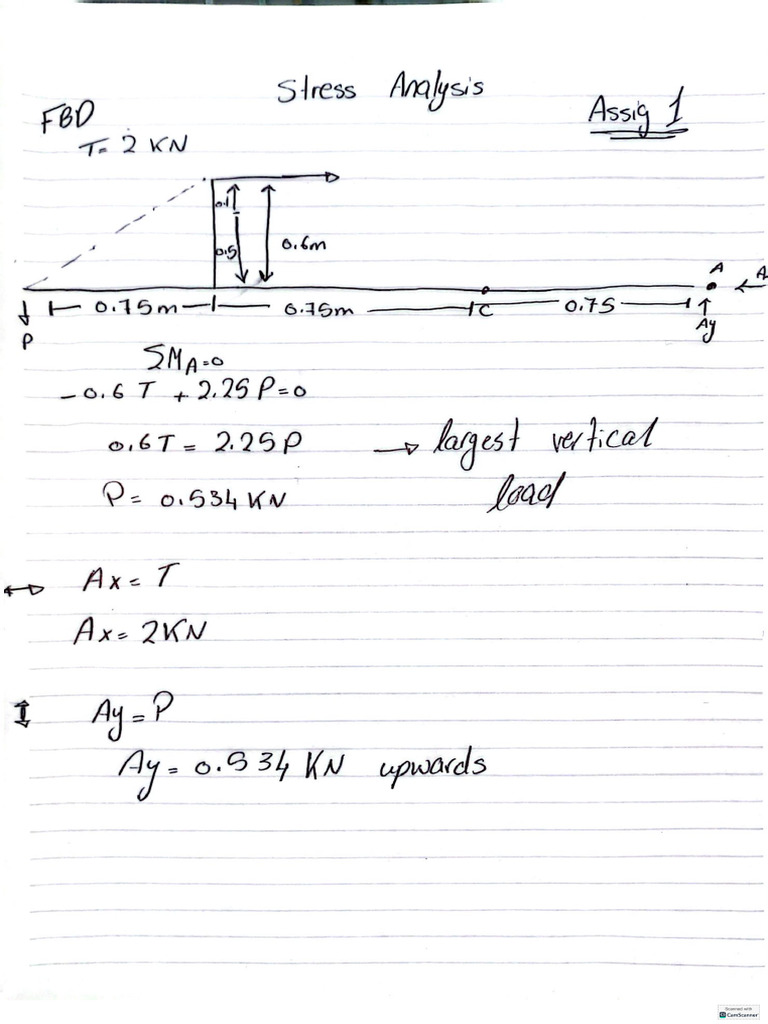 Stress Analysis
Assig 1
FBD
T= 2 KN
0.1
0.5
0.6m
A
P
0.75m
0.75m
C
0.75
Ay
ΣMA=0
-0.6 T + 2.25 P=0
0.6T = 2.25P → largest vertical
load
P= 0.534 KN
↔ Ax= T
Ax= 2KN
↕ Ay=P
Ay= 0.534 KN upwards
Scanned with
CamScanner